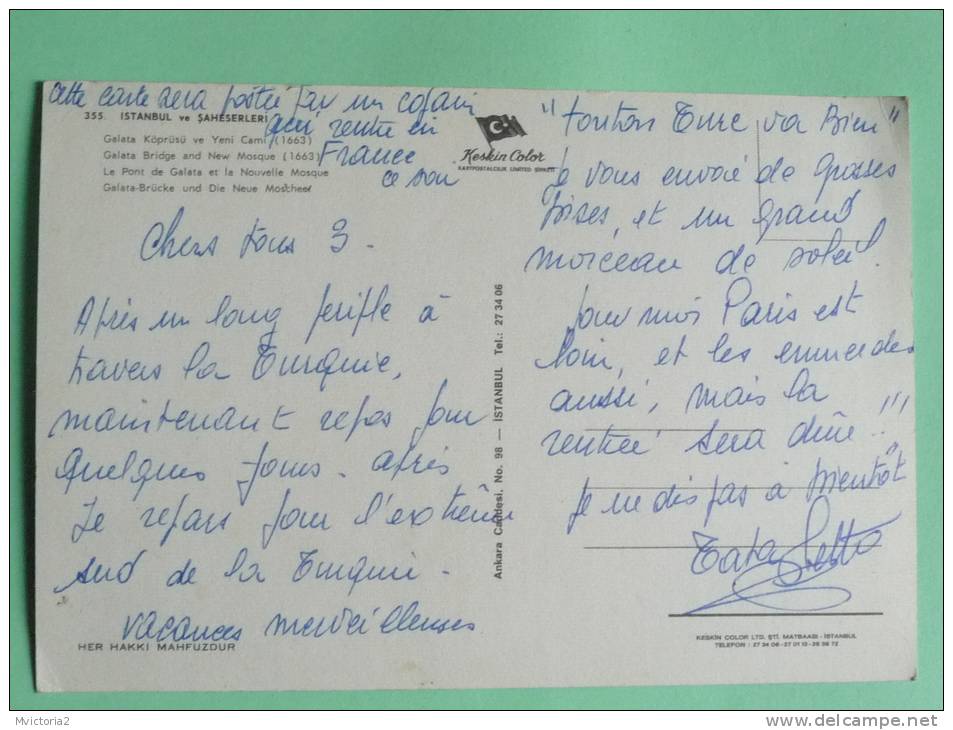 Cette carte sera postée par un copain
qui rentre en
France
ce soir
355. İSTANBUL ve ŞAHESERLERİ
Galata Köprüsü ve Yeni Cami (1663)
Galata Bridge and New Mosque (1663)
Le Pont de Galata et la Nouvelle Mosque
Galata-Brücke und Die Neue Moschee
Keskin Color
KARTPOSTALCILIK LIMITED ŞİRKETİ
Chers tous 3.
Après un long périple à
travers la Turquie,
maintenant repos pour
quelques jours. après
Je repars pour l'extrême
sud de la Turquie.
vacances merveilleuses
HER HAKKI MAHFUZDUR
Ankara Caddesi. No. 98 — İSTANBUL Tel.: 27 34 06
"tonton Turc va Bien"
Je vous envoie de grosses
bises, et un grand
morceau de soleil.
pour moi Paris est
loin, et les emmerdes
aussi, mais la
rentrée sera dure!!!
Je ne dis pas à bientôt
Tata
KESKİN COLOR LTD. ŞTİ. MATBAASI - İSTANBUL
TELEFON : 27 34 06 - 27 01 10 - 26 56 72
Mvictoria2
www.delcampe.net